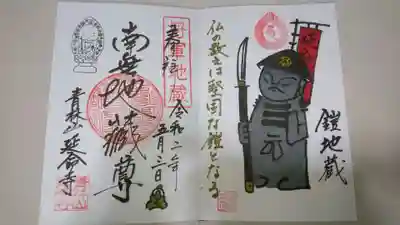 鎧地蔵
仏の教えは堅固な鎧となる
将軍地蔵
奉拝
令和二年
五月三日
南無地蔵尊
青林山延命寺